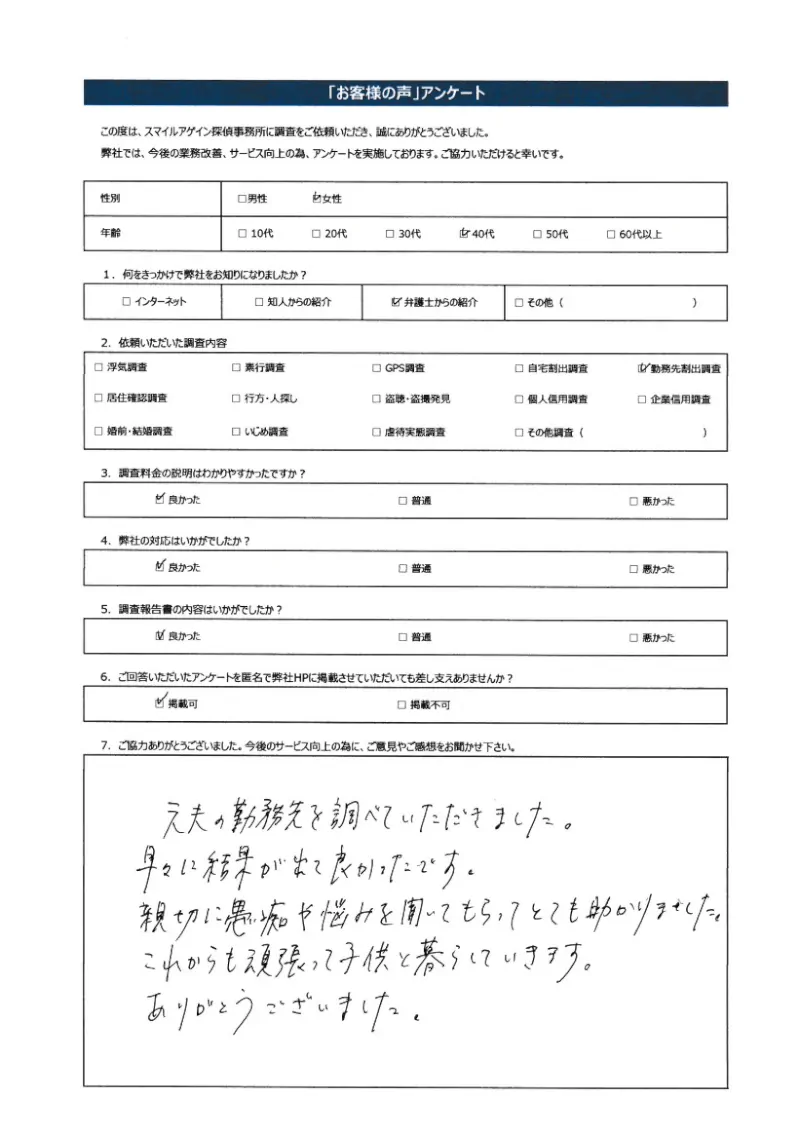 「お客様の声」アンケート
この度は、スマイルアゲイン探偵事務所に調査をご依頼いただき、誠にありがとうございました。
弊社では、今後の業務改善、サービス向上の為、アンケートを実施しております。ご協力いただけると幸いです。
性別 □男性 ☑女性
年齢 □ 10代 □ 20代 □ 30代 ☑ 40代 □ 50代 □ 60代以上
1. 何をきっかけで弊社をお知りになりましたか？
□ インターネット □ 知人からの紹介 ☑ 弁護士からの紹介 □ その他（ ）
2. 依頼いただいた調査内容
□ 浮気調査 □ 素行調査 □ GPS調査 □ 自宅割出調査 ☑ 勤務先割出調査
□ 居住確認調査 □ 行方・人探し □ 盗聴・盗撮発見 □ 個人信用調査 □ 企業信用調査
□ 婚前・結婚調査 □ いじめ調査 □ 虐待実態調査 □ その他調査（ ）
3. 調査料金の説明はわかりやすかったですか？
☑ 良かった □ 普通 □ 悪かった
4. 弊社の対応はいかがでしたか？
☑ 良かった □ 普通 □ 悪かった
5. 調査報告書の内容はいかがでしたか？
☑ 良かった □ 普通 □ 悪かった
6. ご回答いただいたアンケートを匿名で弊社HPに掲載させていただいても差し支えありませんか？
☑ 掲載可 □ 掲載不可
7. ご協力ありがとうございました。今後のサービス向上の為に、ご意見やご感想をお聞かせ下さい。
元夫の勤務先を調べていただきました。
早々に結果が出て良かったです。
親切に愚痴や悩みを聞いてもらってとても助かりました。
これからも頑張って子供と暮らしていきます。
ありがとうございました。